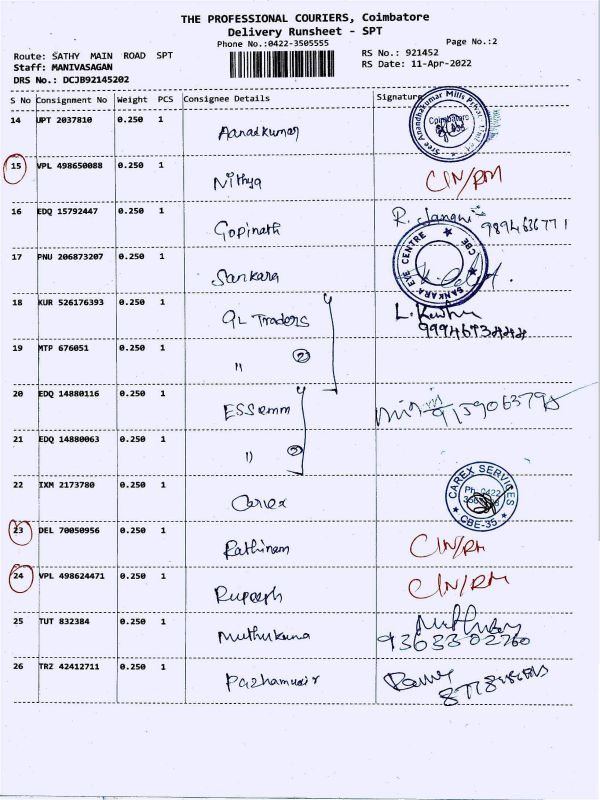 THE PROFESSIONAL COURIERS, Coimbatore
Delivery Runsheet - SPT
Phone No.:0422-3505555
Page No.:2
Route: SATHY MAIN ROAD SPT
RS No.: 921452
Staff: MANIVASAGAN
RS Date: 11-Apr-2022
DRS No.: DCJB92145202
S No Consignment No Weight PCS Consignee Details Signature
14 UPT 2037810 0.250 1 Anandkumar
15 VPL 498650088 0.250 1 Nithya CIN/RM
16 EDQ 15792447 0.250 1 Gopinath R. 9894636771
17 PNU 206873207 0.250 1 Sankara SANKARA EYE CENTRE CBE
18 KUR 526176393 0.250 1 GL Traders L.
19 MTP 676051 0.250 1 " 2
20 EDQ 14880116 0.250 1 ESSemm
21 EDQ 14880063 0.250 1 " 2
22 IXM 2173780 0.250 1 Carex CAREX SERVICES Ph: 0422 CBE-35
23 DEL 70050956 0.250 1 Rathinam CIN/RM
24 VPL 498624471 0.250 1 Rupeesh CIN/RM
25 TUT 832384 0.250 1 Muthukuna 9363302760
26 TRZ 42412711 0.250 1 Pazhamudir